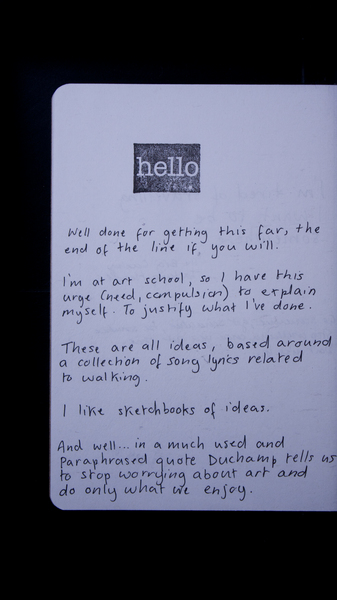 hello
Well done for getting this far, the
end of the line if you will.
I'm at art school, so I have this
urge (need, compulsion) to explain
myself. To justify what I've done.
These are all ideas, based around
a collection of song lyrics related
to walking.
I like sketchbooks of ideas.
And well... in a much used and
Paraphrased quote Duchamp tells us
to stop worrying about art and
do only what we enjoy.